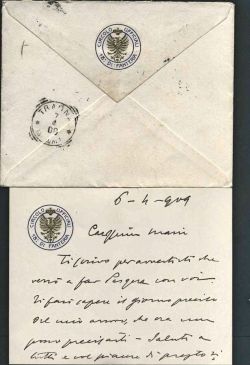 CIRCOLO UFFICIALI
DI FANTERIA
TRAPANI
CIRCOLO UFFICIALI
DI FANTERIA
6-4-909
Ti scrivo per avvertirti che
verrò a far Pasqua con voi.
Ti farò sapere il giorno preciso
del mio arrivo, che ora non
posso precisarti - Saluti a
tutti e col piacere di